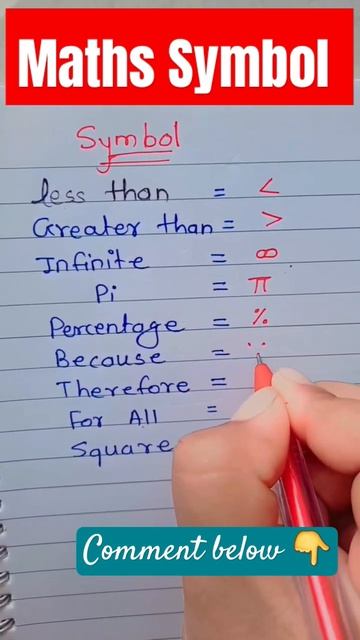 Maths Symbol
Symbol
less than = <
Greater than = >
Infinite = ∞
Pi = π
Percentage = %
Because = ∵
Therefore =
For All =
Square
Comment below 👇